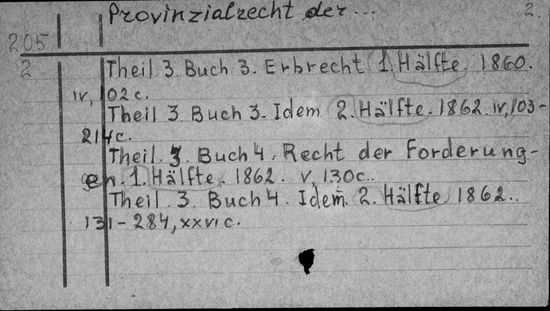 Provinzialrecht der... 2.
205
2 Theil 3 Buch 3. Erbrecht 1. Hälfte. 1860.
IV, 102 c.
Theil 3 Buch 3. Idem 2. Hälfte. 1862. IV, 103-
214 c.
Theil. 3. Buch 4. Recht der Forderung-
en. 1. Hälfte. 1862. V, 130 c.
Theil. 3. Buch 4. Idem. 2. Hälfte 1862..
131-284, XXVI c.